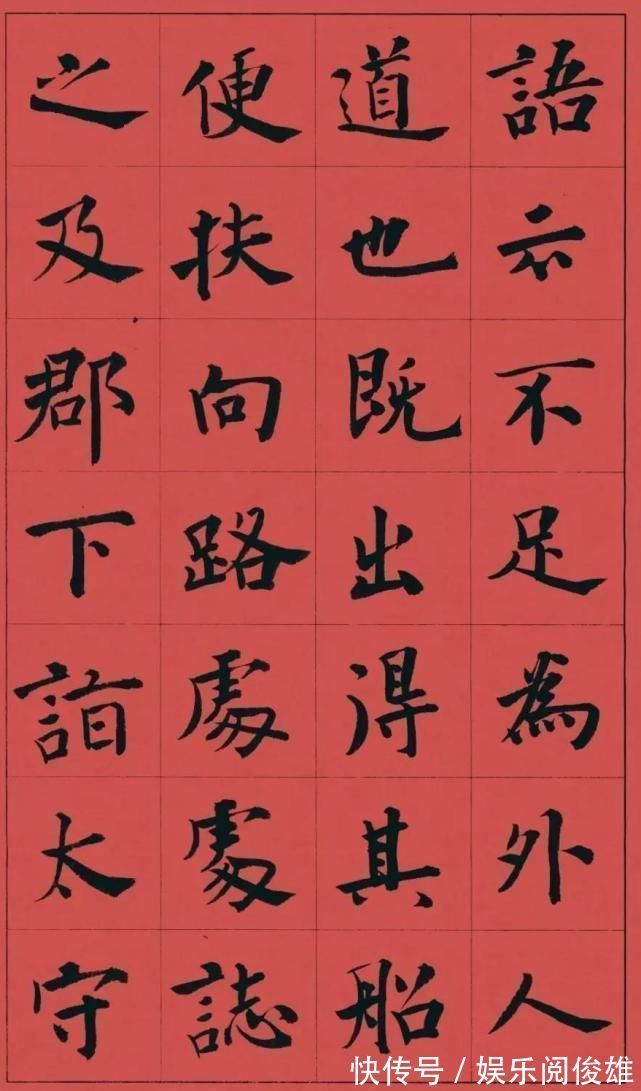 語云不足為外人
道也既出得其船
便扶向路處處誌
之及郡下詣太守
快传号 / 娱乐阅俊雄